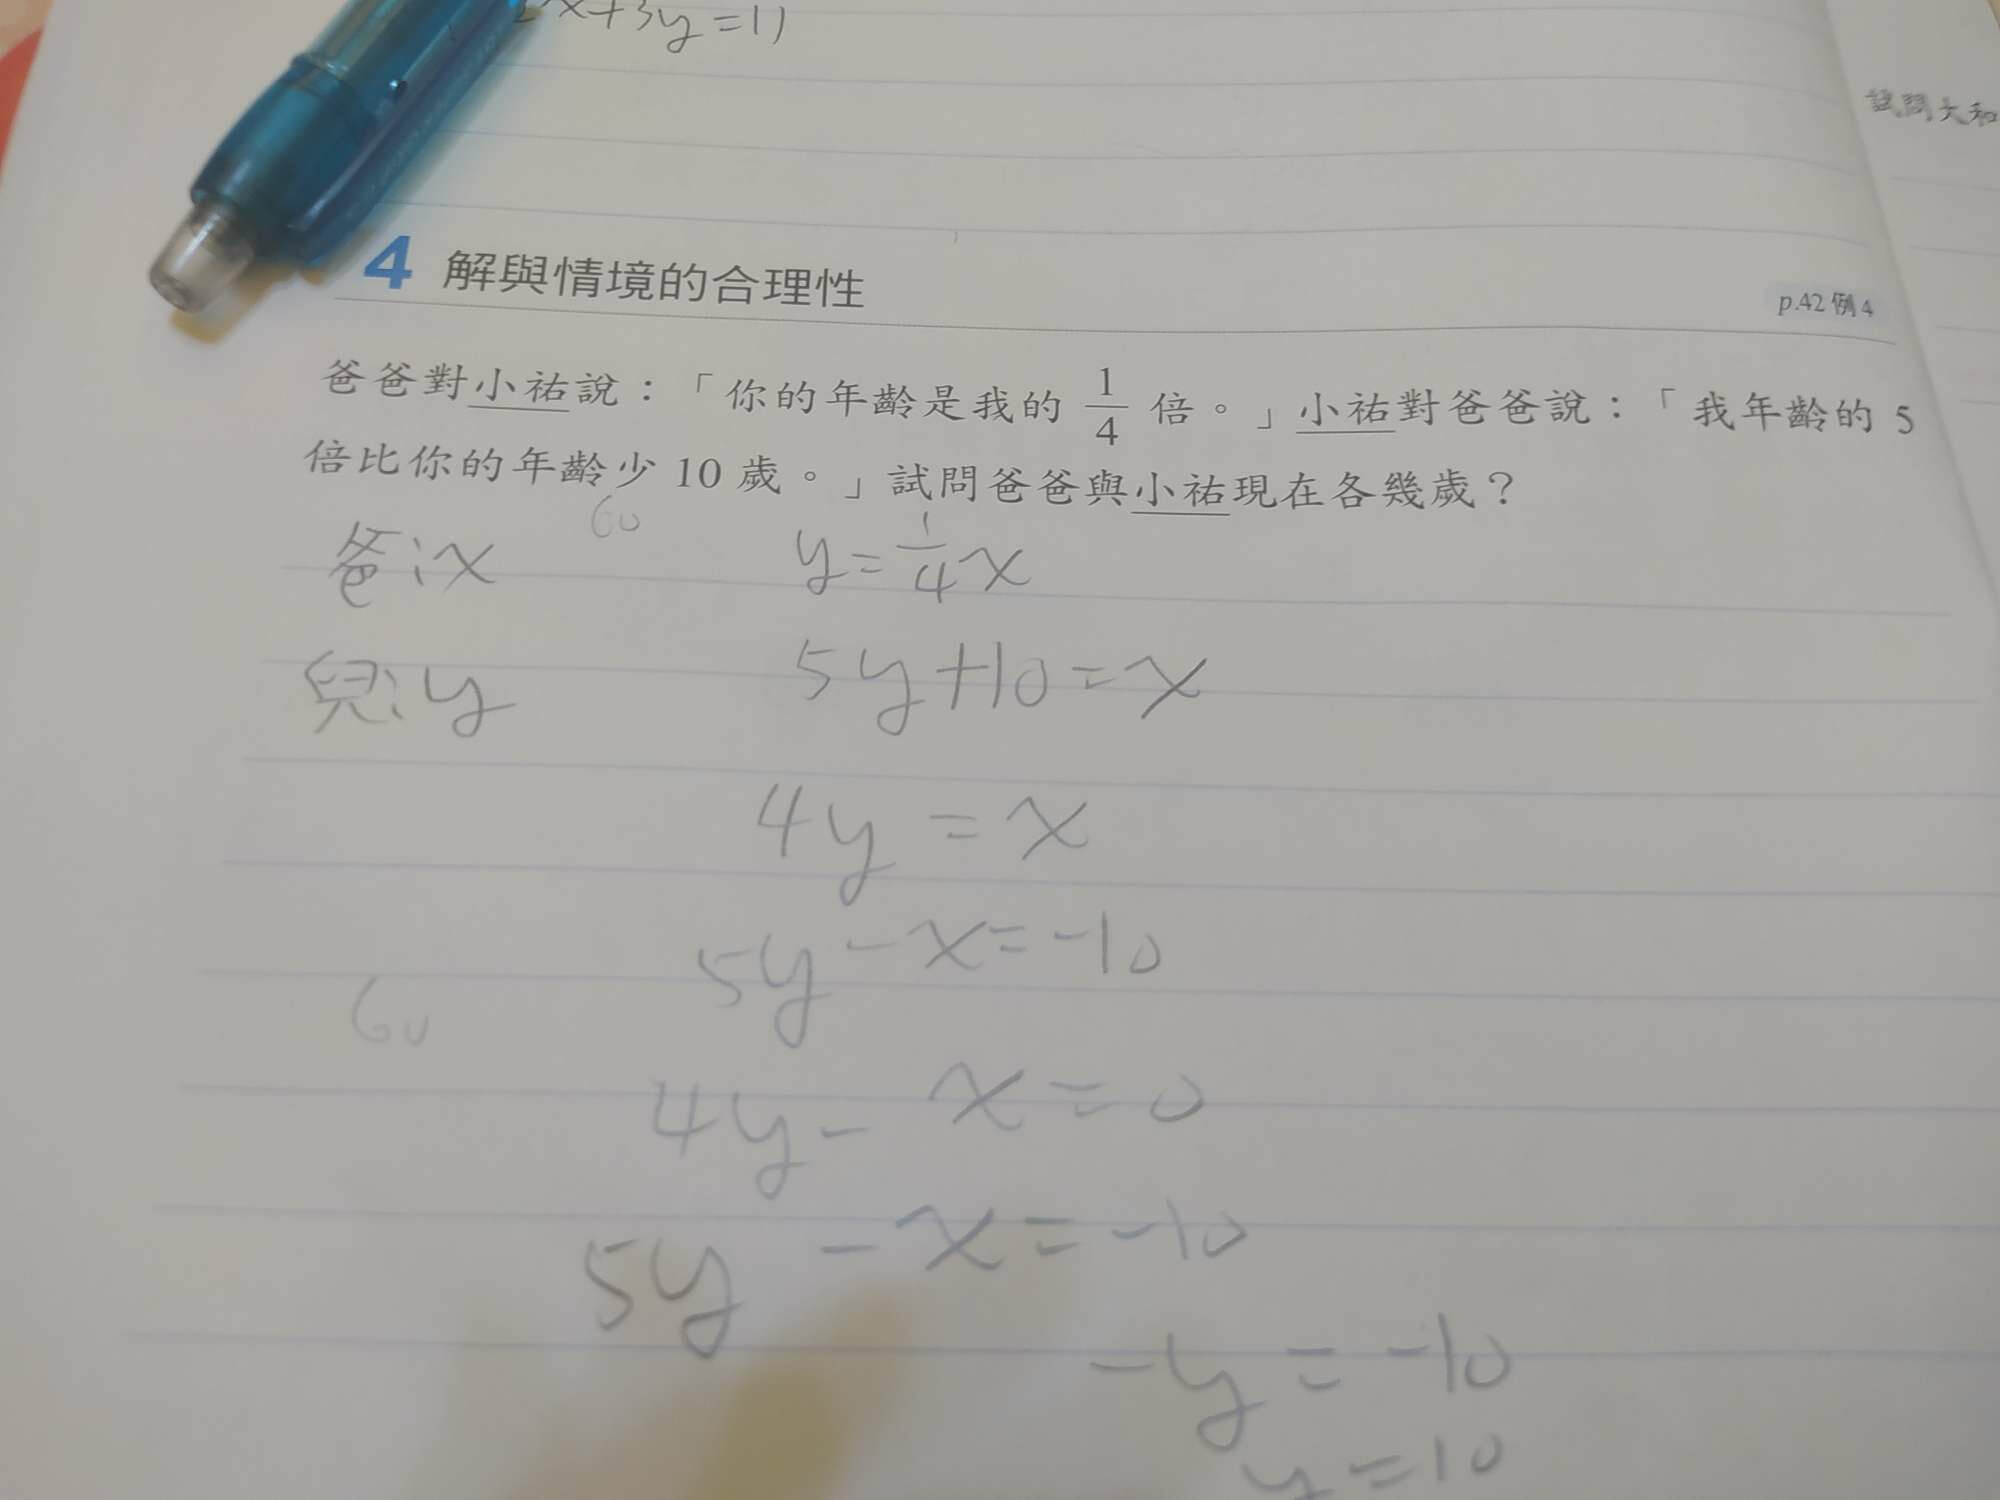 x+3y=11
試問大和
4 解與情境的合理性
p.42例4
爸爸對小祐說：「你的年齡是我的 1/4 倍。」小祐對爸爸說：「我年齡的 5
倍比你的年齡少 10 歲。」試問爸爸與小祐現在各幾歲？
60
爸:x y=1/4x
兒:y 5y+10=x
4y=x
5y-x=-10
60
4y-x=0
5y-x=-10
-y=-10
y=10